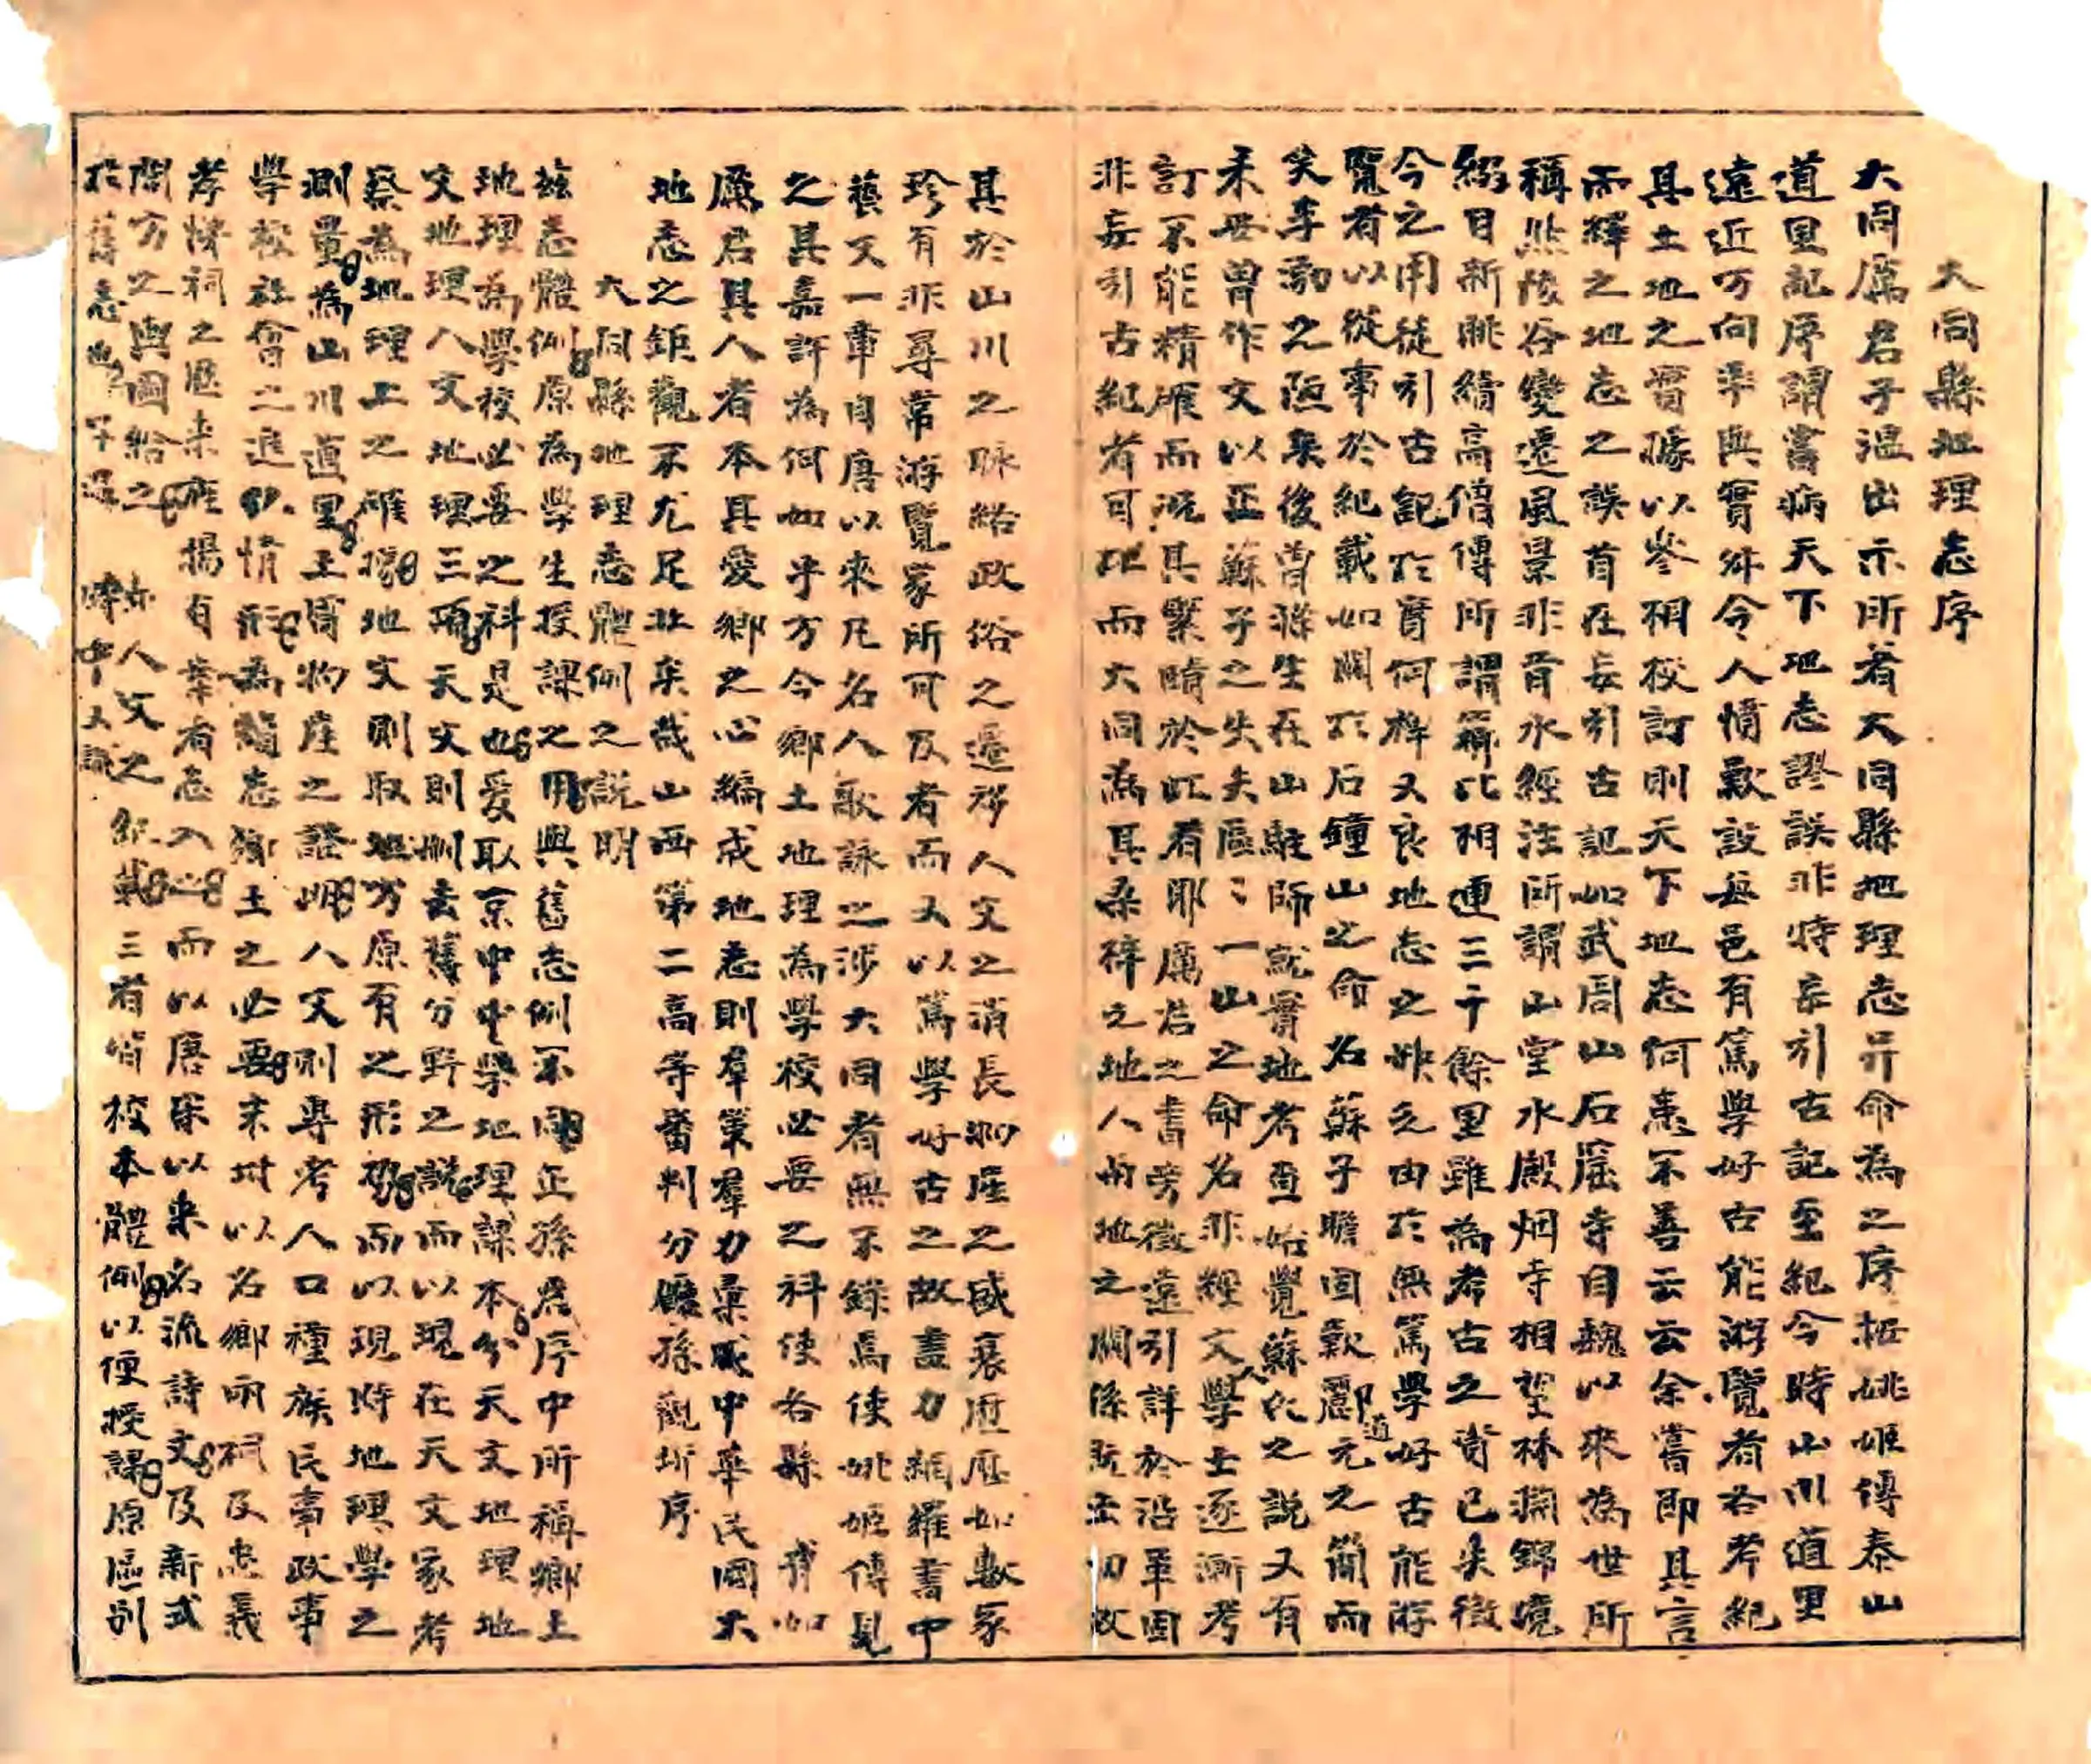 大同縣地理志序
大同厲君子溫出示所著大同縣地理志并命為之序拒姚姬傳泰山
道里記序謂嘗病天下地志謬誤非特妄引古記至紀今時山川道里
遠近方向率與實舛令人憤歎設每邑有篤學好古能游覽者各考紀
其土地之實據以參相校訂則天下地志何患不善云云余嘗即其言
而繹之地志之誤首在妄引古記如武周山石窟寺自魏以來為世所
稱然陵谷變遷風景非昔水經注所謂山堂水殿烟寺相望林淵錦鏡
綴目新眺續高僧傳所謂龕比相連三十餘里雖為考古之資已失徵
今之用徒引古記於實何裨又良地志之舛之由於無篤學好古能游
覽者以從事於紀載如關於石鐘山之命名蘇子瞻固歎酈道元之簡而
笑李渤之陋矣後曾滌生在山駐師就實地考查始覺蘇氏之說又有
未安曾作文以正蘇子之失夫區〻一山之命名非經文人學士逐漸考
訂不能精確而況其繁賾於此者耶厲君之書旁徵遠引詳於沿革固
非妄引古紀者可比而大同為其桑梓之地人與地之關係既密切故
其於山川之脉絡政俗之遷移人文之消長物產之盛衰歷歷如數家
珍有非尋常游覽家所可及者而又以篤學好古之故盡力網羅書中
藝文一章自唐以來凡名人歌詠之涉大同者無不錄焉使姚姬傳見
之其嘉許為何如乎方今鄉土地理為學校必要之科使各縣 有如
厲君其人者本其愛鄉之心編成地志則羣策羣力彙成中華民國大
地志之鉅觀不尤足壯矣哉山西第二高等審判分廳孫觀圻序
大同縣地理志體例之說明
茲志體例原為學生授課之用與舊志例不同正孫君序中所稱鄉土
地理為學校必要之科是也爰取京中中學地理課本分天文地理地
文地理人文地理三項天文則刪去舊分野之說而以現在天文家考
察為地理上之確據地文則取地方原有之形勢而以現時地理學之
測量為山川道里土膏物產之證明人文則專考人口種族民事政事
學校社會之進化情形為簡志鄉土之必要末附以名鄉兩祠及忠義
孝悌祠之歷來旌揚有幸者志入之而以唐宋以來名流詩文及新式
開方之輿圖給之 人文之紀載三者皆校本體例以便授課原區別
於舊志也